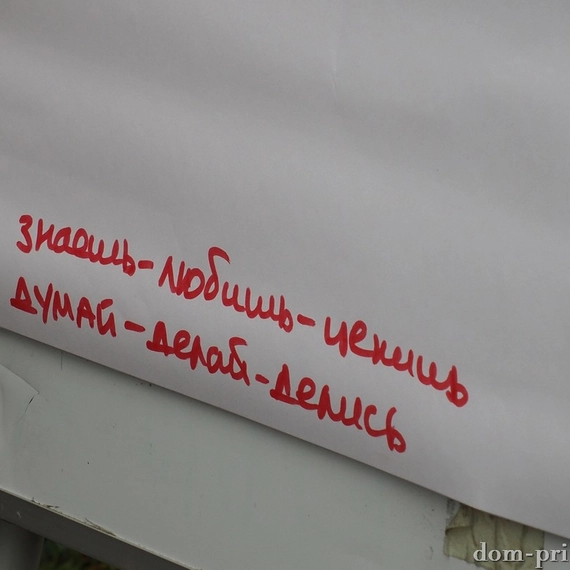 знаешь-любишь-ценишь
думай-делай-делись
dom-pri